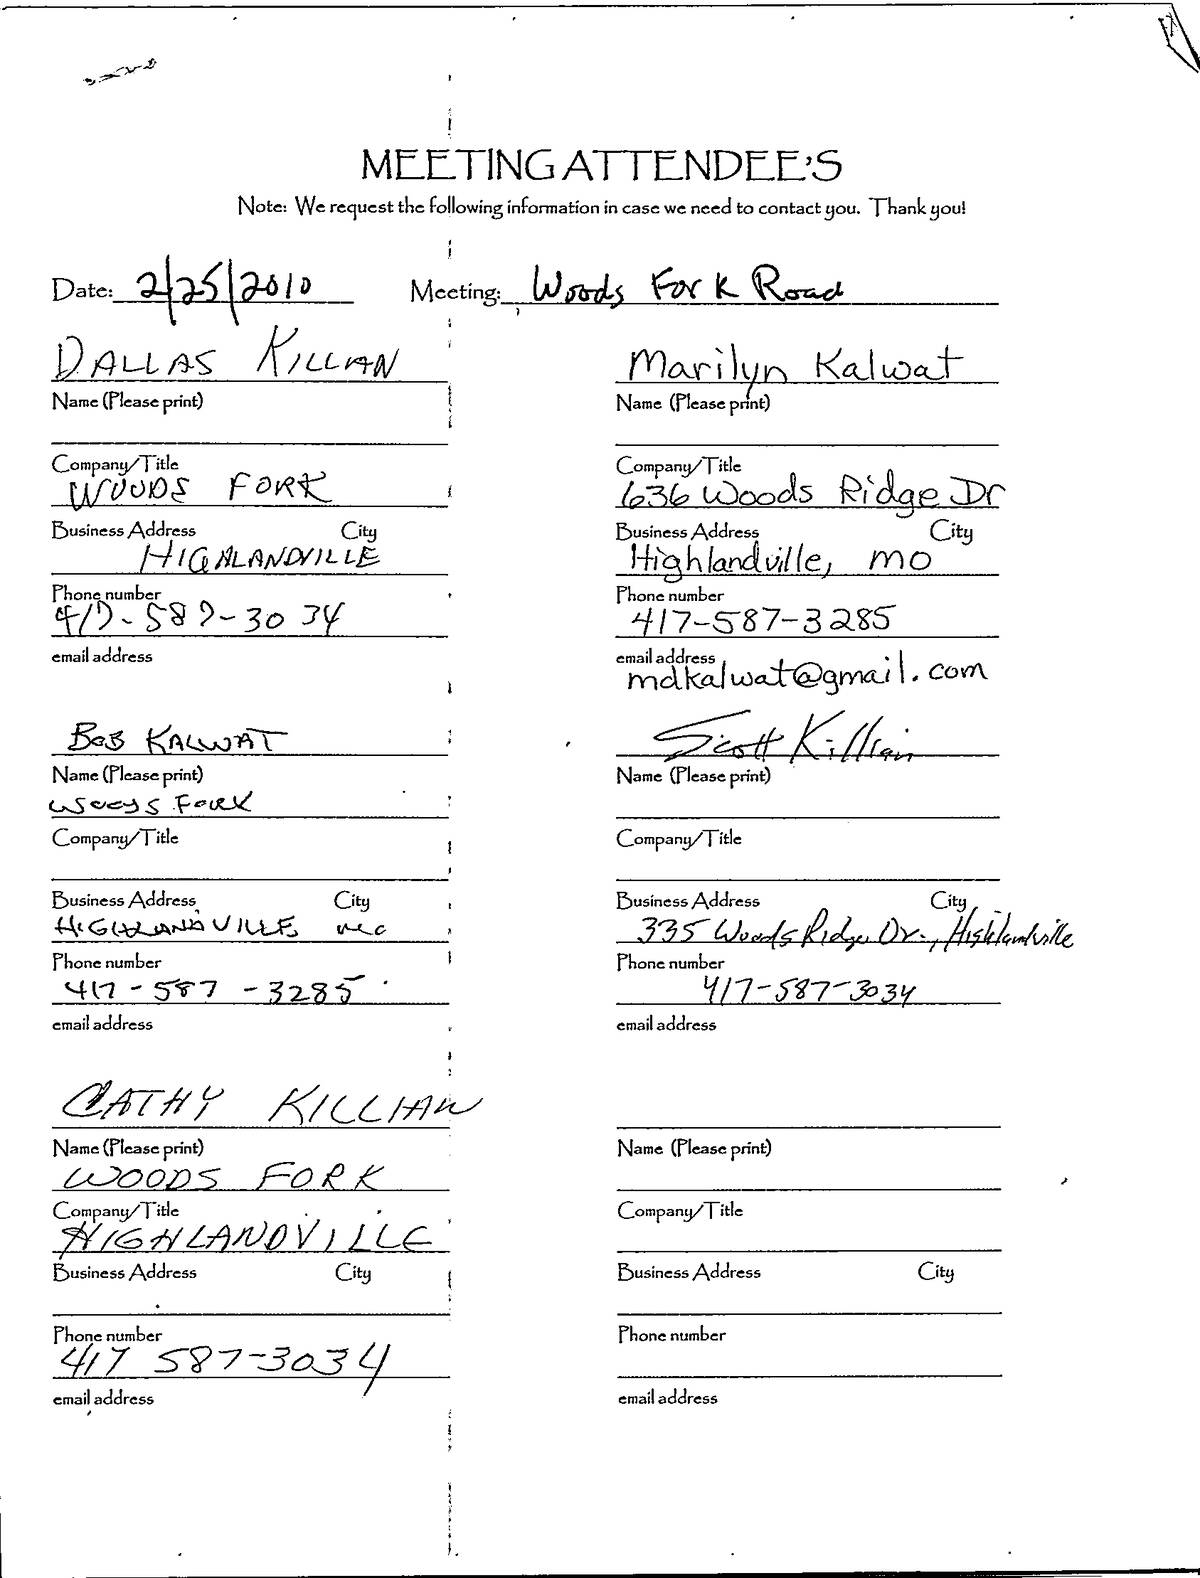 MEETING ATTENDEE'S
Note: We request the following information in case we need to contact you. Thank you!
Date: 2/25/2010 Meeting: Woods Fork Road
DALLAS KILLIAN
Name (Please print)
Company/Title
WOODS FORK
Business Address City
HIGHLANDVILLE
Phone number
417-587-3034
email address
Marilyn Kalwat
Name (Please print)
Company/Title
636 Woods Ridge Dr
Business Address City
Highlandville, MO
Phone number
417-587-3285
email address
mdkalwat@gmail.com
BOB KALWAT
Name (Please print)
WOODS FORK
Company/Title
Business Address City
HIGHLANDVILLE MO
Phone number
417-587-3285
email address
Scott Killian
Name (Please print)
Company/Title
Business Address City
335 Woods Ridge Dr., Highlandville
Phone number
417-587-3034
email address
CATHY KILLIAN
Name (Please print)
WOODS FORK
Company/Title
HIGHLANDVILLE
Business Address City
Phone number
417 587-3034
email address
Name (Please print)
Company/Title
Business Address City
Phone number
email address